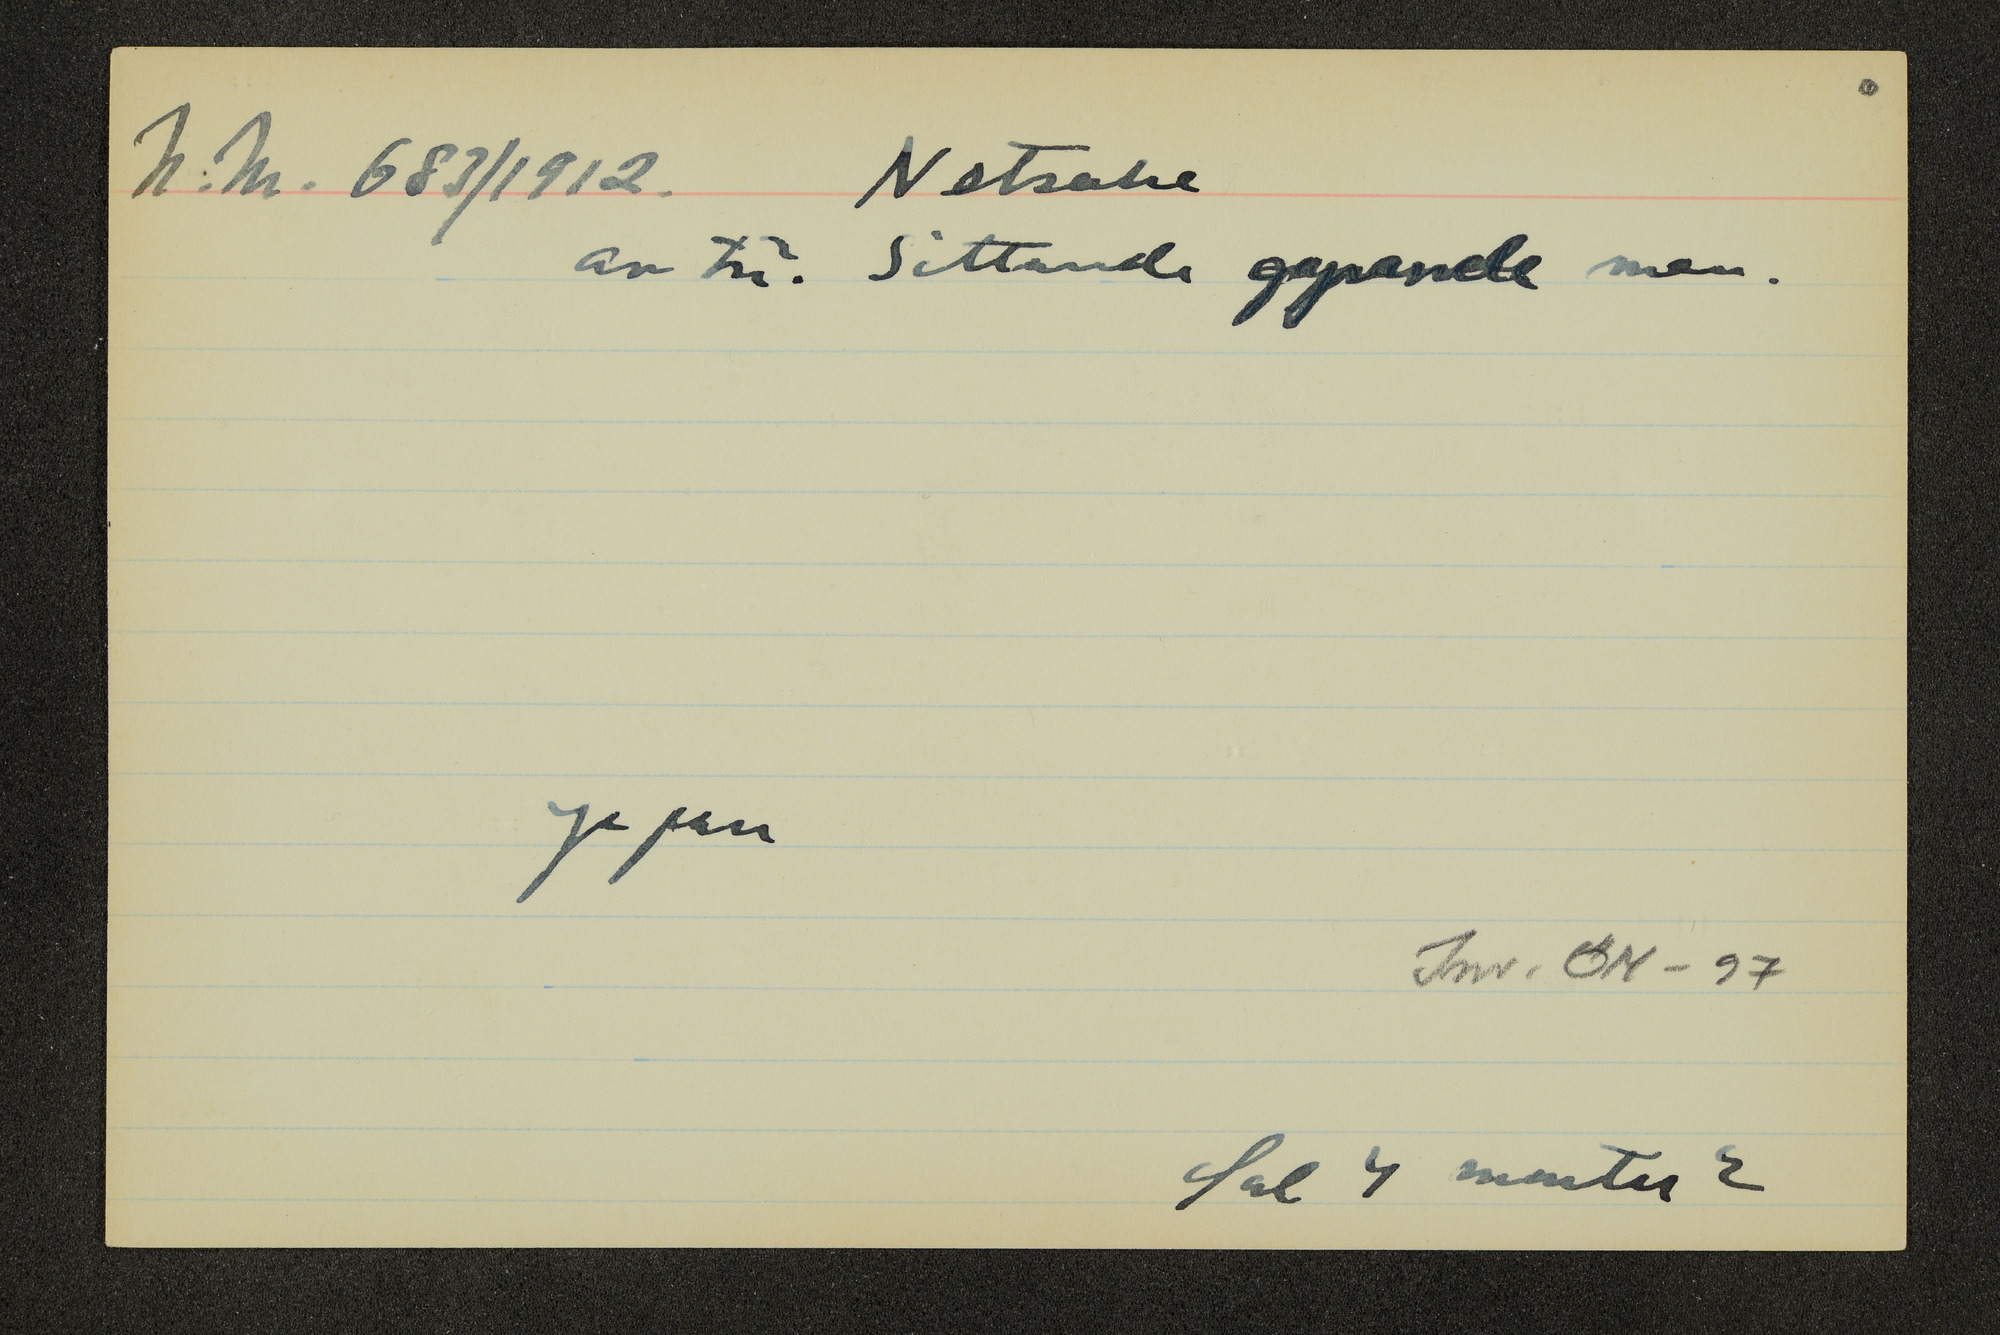 N.M. 683/1912. Netsuke
av trä. Sittande gapande man.
Japan
Inv. ÖN - 97
Sal 4 monter 2